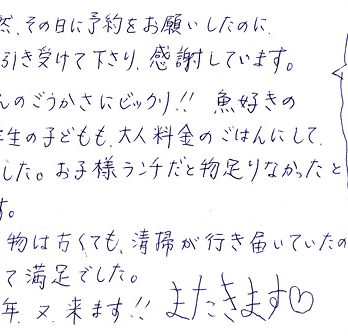 然、その日に予約をお願いしたのに、
引き受けて下さり、感謝しています。
んのごうかさにビックリ!! 魚好きの
生の子どもも、大人料金のごはんにして、
した。お子様ランチだと物足りなかったと
す。
物は古くても、清掃が行き届いていたの
て満足でした。
年、又、来ます!! またきます♡